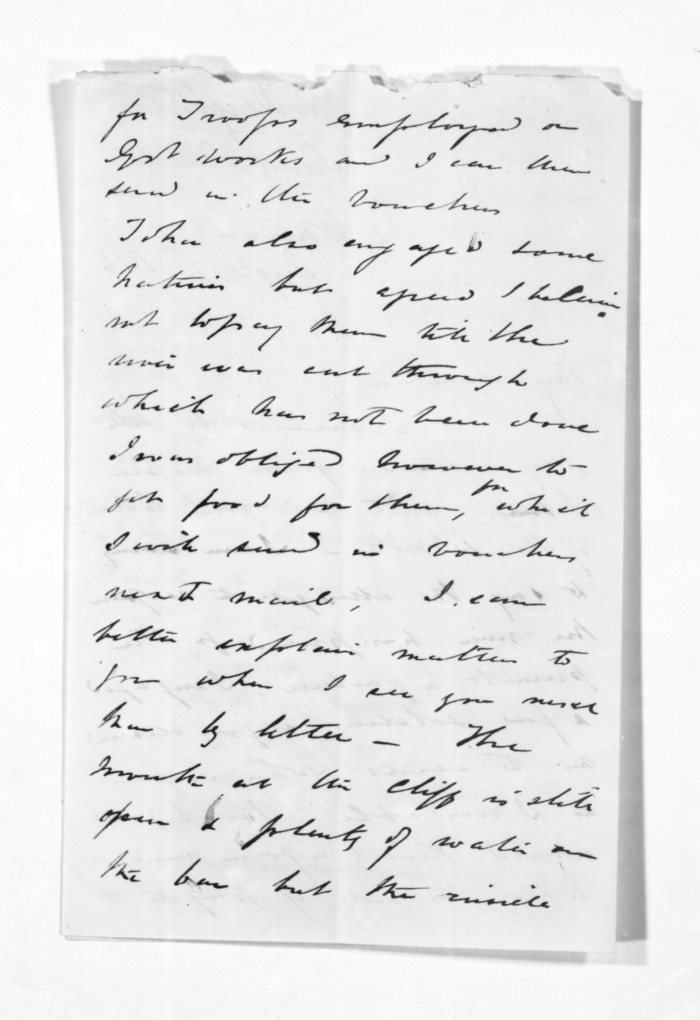 for Troops employed on
Govt works and I can then
send in the vouchers
John also engaged some
natives but agreed I believe
not to pay them till the
river was cut through
which has not been done
I was obliged however to
get food for them, for which
I will send in vouchers
next mail, I can
better explain matters to
you when I see you next
than by letter — The
mouth at the Cliff is still
open & plenty of water on
the bar but the inside